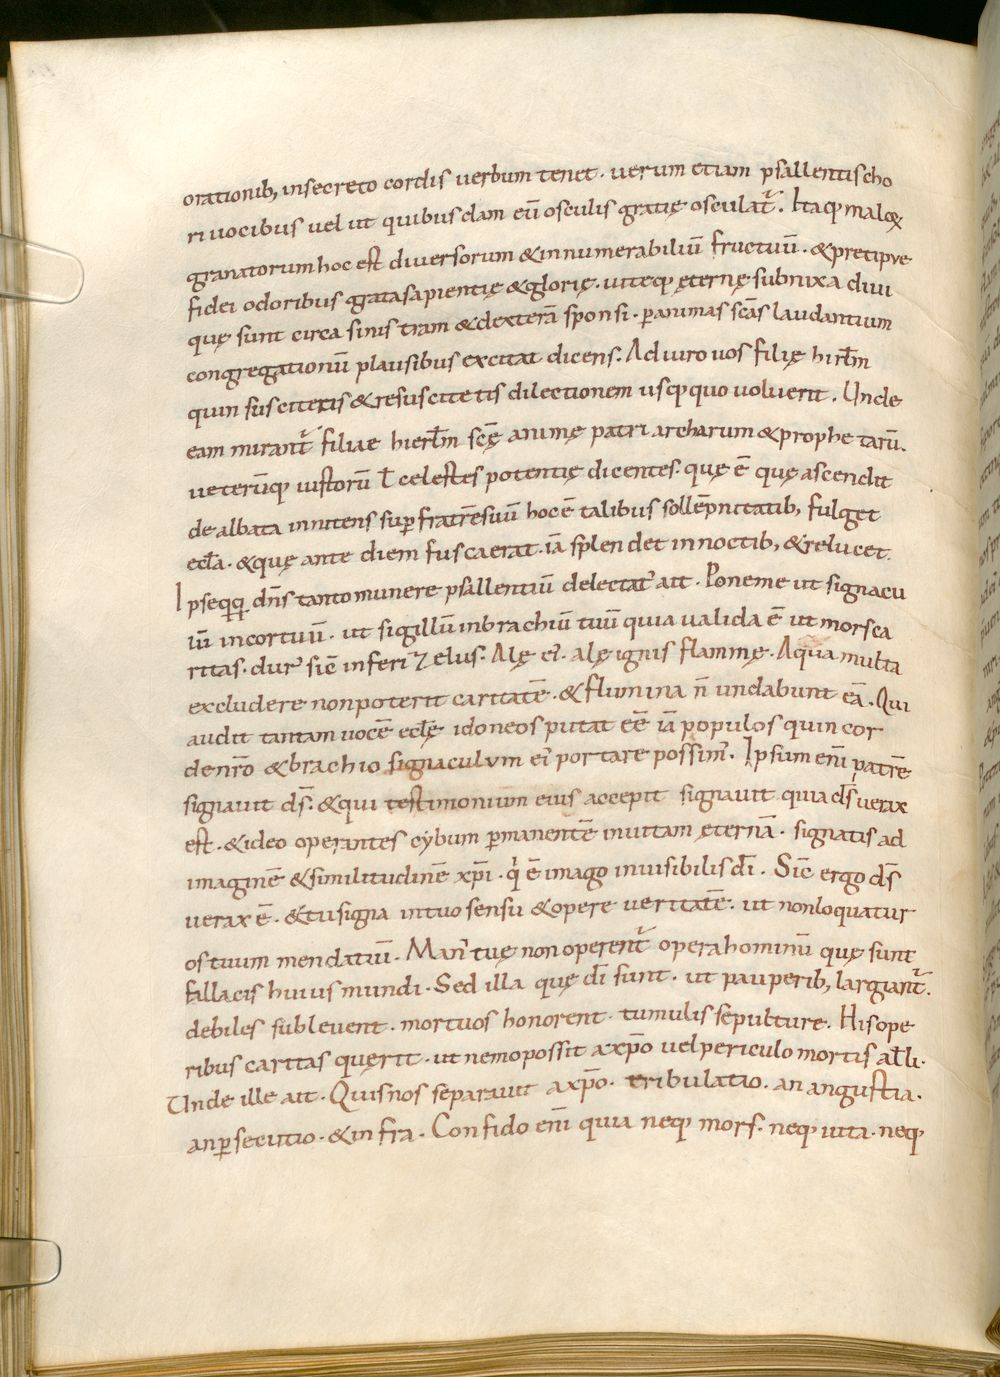 orationib; insecreto cordis uerbum tenet. uerum etiam psallentis cho
ri uocibus uel ut quibusdam eū osculis gratię osculat᷑. Itaq; maloꝝ
granatorum hoc est diuersorum & innumerabiliū fructuū. & pretipve
fidei odoribus grata sapientię & glorię. uiteq; ęternę subnixa diui
quę sunt circa sinistram & dexterā sponsi. ꝑ animas sc̄as laudantium
congregationū plausibus excitat dicens. Adiuro uos filię hirl̄m
quin suscitetis & resuscitetis dilectionem usq; quo uoluerit. Unde
eam mirant᷑ filiae hierl̄m scę̄ animę patriarcharum & prophetarū.
ueterūq; iustorū ł celestes potentię dicentes. quę ē quę ascendit
dealbata innitens suꝑ fratrē suū hoc ē talibus sollēpnitatib; fulget
eccl̄a. & quę ante diem fusca erat. iā splendet in noctib; & relucet.
Ipse q;q; dn̄s tanto munere psallentiū delectat᷑ ait. Pone me ut signacu
lū in cor tuū. ut sigillū in brachiū tuū quia ualida ē ut mors ca
ritas. dur᾽ sic̄ inferi ⁊ elus. Alę ei᾽. alę ignis flammę. Aqua multa
excludere non poterit caritatē. & flumina n̄ undabunt eā. Qui
audit tantam uocē eccl̄ę idoneos putat eē iā populos qui in cor
de nr̄o & brachio signaculvm ei᾽ portare possim᾽. Ipsum eni̅ patrē
signauit ds̄. & qui testimonium eius accepit signauit quia ds̄ uerax
est. & ideo operantes cybum ꝑmanentē in uitam ęternā. signatis ad
imaginē & similitudinē xp̄i. q̇ ē imago inuisibilis dī. Sic̄ ergo ds̄
uerax ē. & tu signa in tuo sensu & opere ueritatē. ut non loquatur
os tuum mendatiū. Man᾽ tuę non operent᷑ opera hominū quę sunt
fallacis huius mundi. Sed illa quę dī sunt. ut pauperib; largiant᷑.
debiles subleuent. mortuos honorent. tumulis sepulturę. His ope
ribus caritas quęrit. ut nemo possit a xp̄o uel periculo mortis auelli.
Unde ille ait. Quis nos separauit a xp̄o. tribulatio. an angustia.
an ꝑsecutio. & infra. Confido eni̅ quia neq; mors. neq; uita. neq;